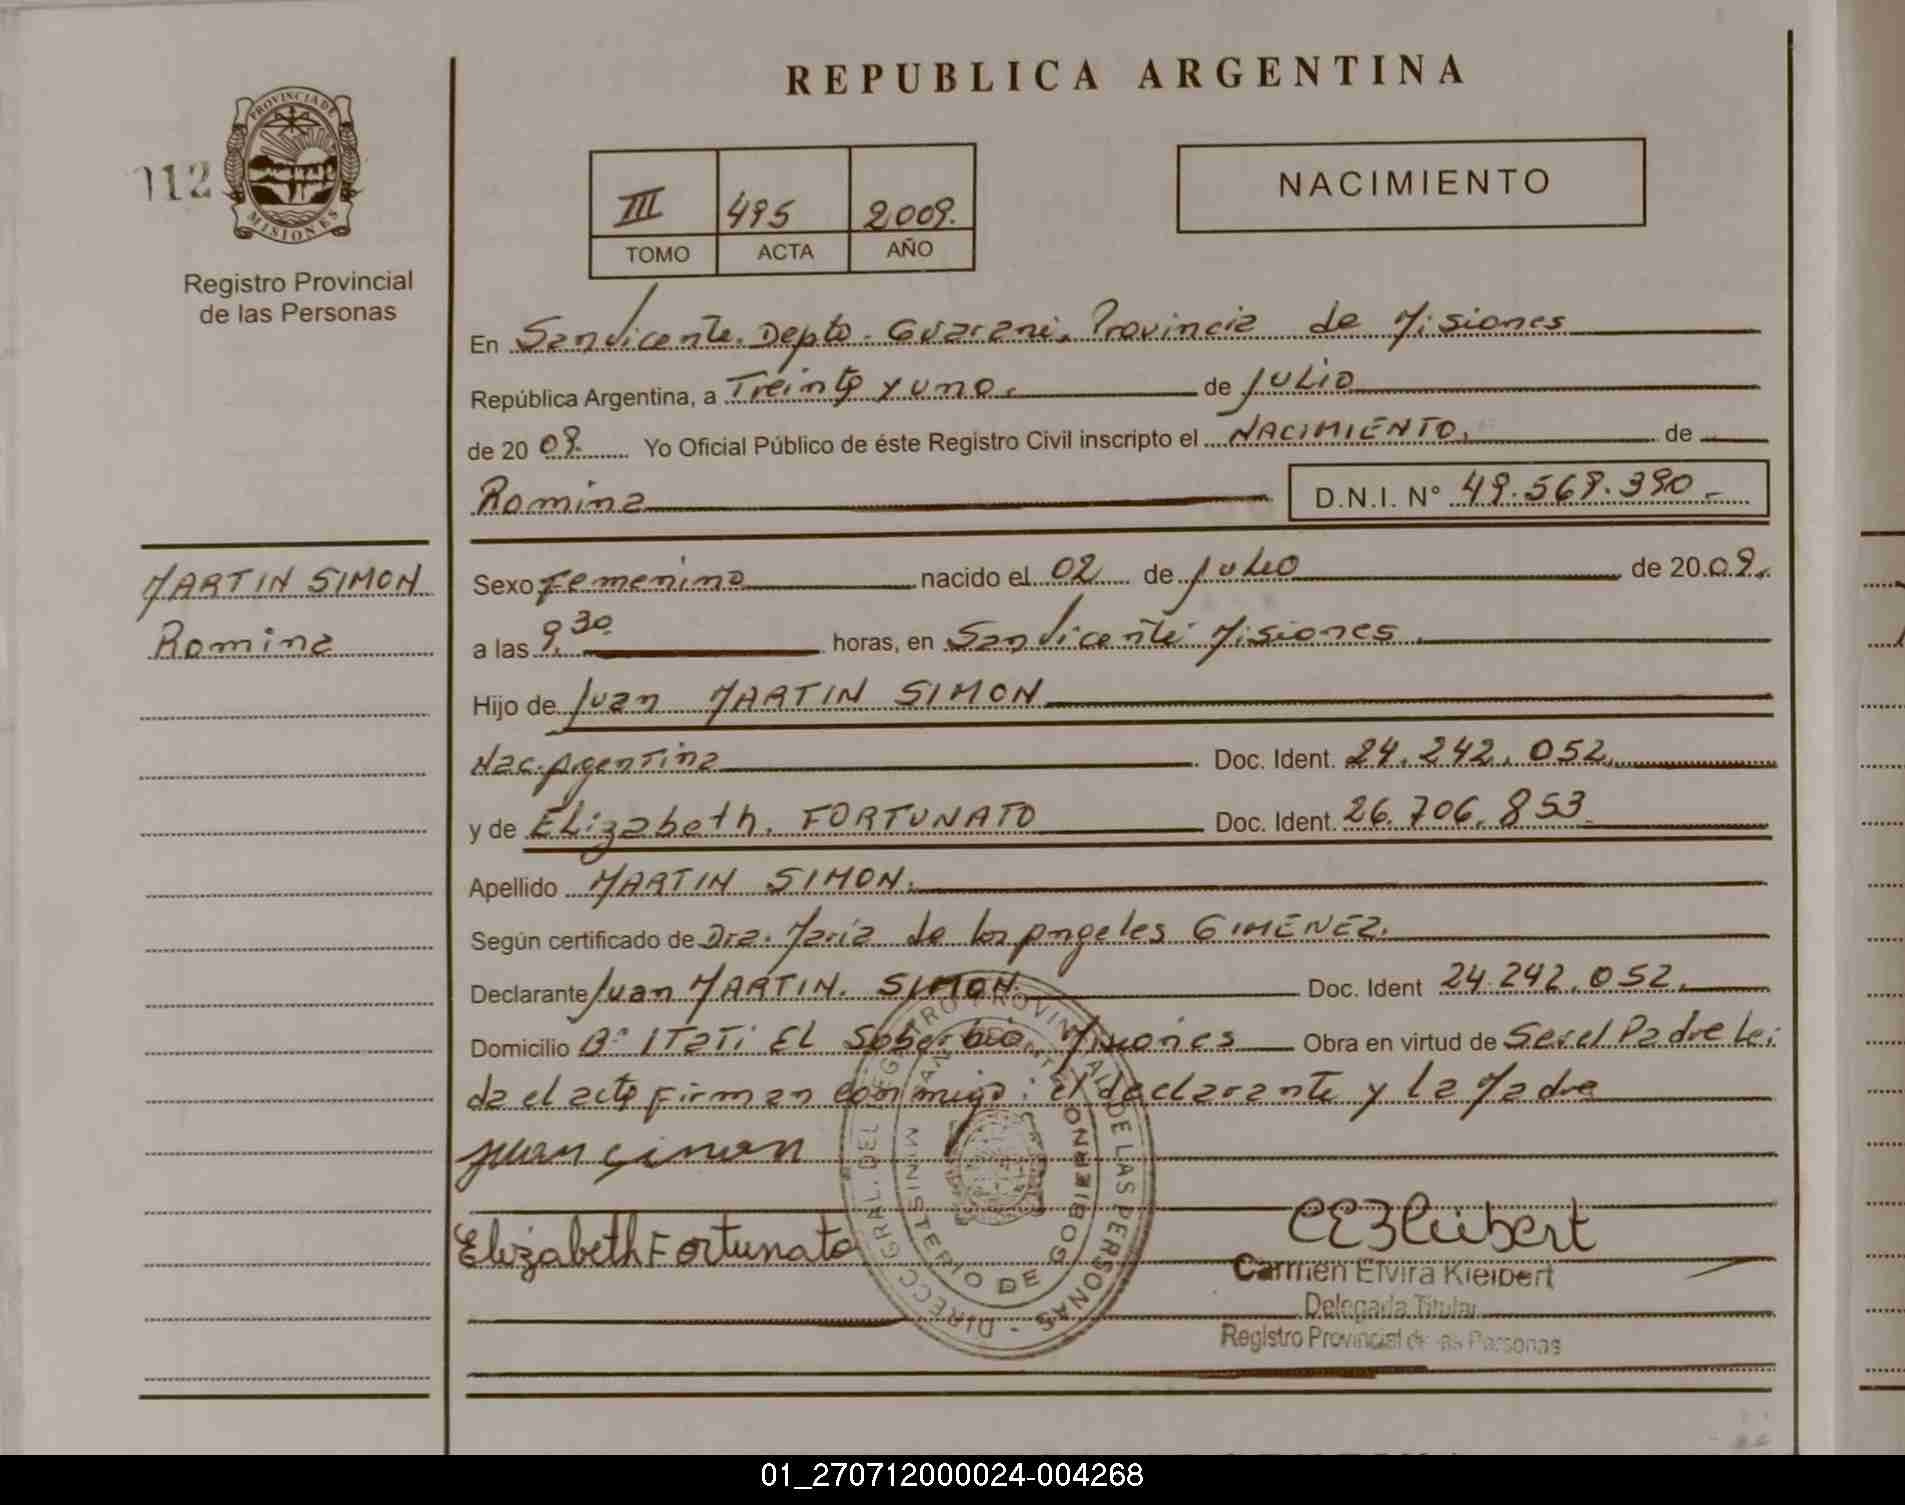 REPUBLICA ARGENTINA
112
PROVINCIA DE
MISIONES
Registro Provincial
de las Personas
III 495 2009.
TOMO ACTA AÑO
NACIMIENTO
En San Vicente. Depto. Guarani, Provincia de Misiones
República Argentina, a Treinta y uno. de Julio
de 20 09. Yo Oficial Público de éste Registro Civil inscripto el NACIMIENTO, de
Romina D.N.I. N° 49.569.390.-
MARTIN SIMON
Romina
Sexo Femenino nacido el 02 de Julio de 20 09.
a las 9,30 horas, en San Vicente Misiones.
Hijo de Juan MARTIN SIMON
Nac. Argentina Doc. Ident. 24.242.052.
y de Elizabeth. FORTUNATO Doc. Ident. 26.706.853
Apellido MARTIN SIMON.
Según certificado de Dra. Maria de los Angeles GIMENEZ.
Declarante Juan MARTIN. SIMON. Doc. Ident 24.242.052.
Domicilio B° Itati El Soberbio Misiones Obra en virtud de Ser el Padre Lei
da el acta Firman conmigo: el declarante y la Madre
Juan Simon
Elizabeth Fortunato
DIRECC. GRAL. DEL REGISTRO PROVINCIAL DE LAS PERSONAS -
MINISTERIO DE GOBIERNO
CEKleibert
Carmen Elvira Kleibert
Delegada Titular
Registro Provincial de las Personas
01_270712000024-004268